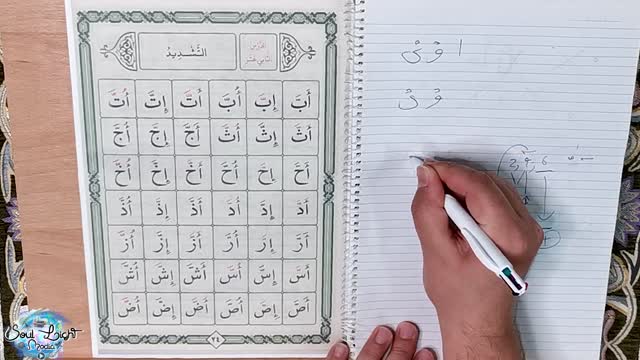 الدَّرْسُ الثَّانِي عَشَرَ
التَّشْدِيدُ
أَبَّ إِبَّ أُبَّ أَتَّ إِتَّ أُتَّ
أَثَّ إِثَّ أُثَّ أَجَّ إِجَّ أُجَّ
أَحَّ إِحَّ أُحَّ أَخَّ إِخَّ أُخَّ
أَدَّ إِدَّ أُدَّ أَذَّ إِذَّ أُذَّ
أَرَّ إِرَّ أُرَّ أَزَّ إِزَّ أُزَّ
أَسَّ إِسَّ أُسَّ أَشَّ إِشَّ أُشَّ
أَصَّ إِصَّ أُصَّ أَضَّ إِضَّ أُضَّ
٢٤
ا وْ يْ
وْ يْ
2, 4, 6
Soul Light
Media